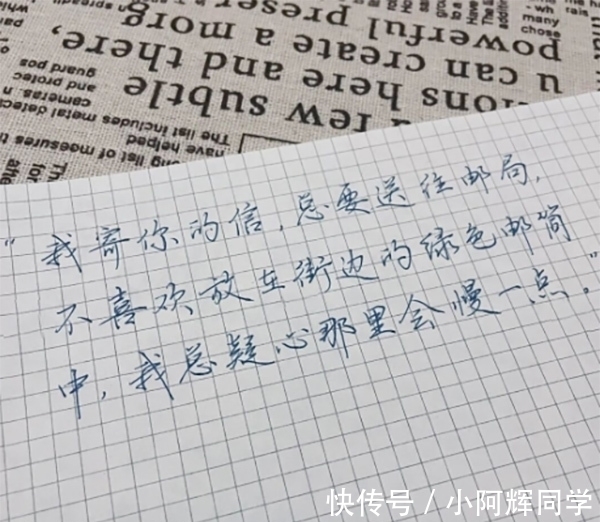 "我寄你的信，总要送往邮局，
不喜欢放在街边的绿色邮筒
中，我总疑心那里会慢一点。"
have helped
The list includes
metal detec
cameras, n
and protec
guard pos
a few subtle
ions here and there,
u can create a morg
powerful preser
many
chose
快传号 / 小阿辉同学